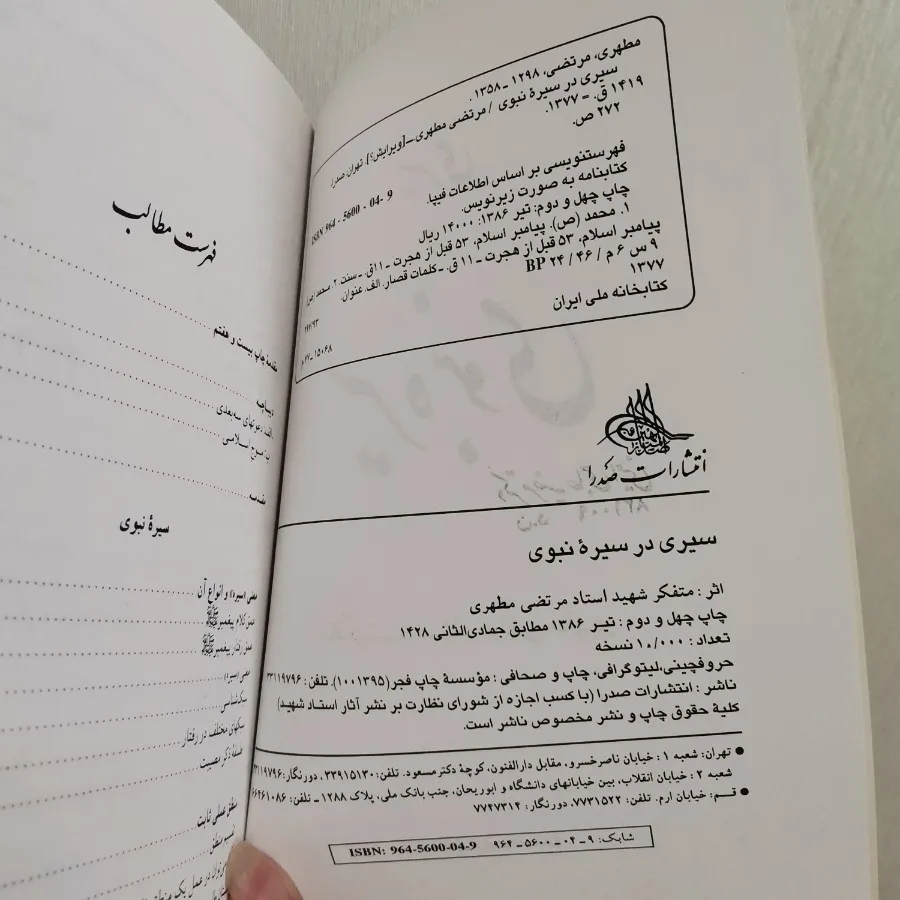 مطهری، مرتضی، ۱۲۹۸ ـ ۱۳۵۸.
سیری در سیرهٔ نبوی / مرتضی مطهری. ـ [ویرایش؟]. تهران: صدرا
۱۴۱۹ ق. = ۱۳۷۷.
۲۷۲ ص.
ISBN 964 - 5600 - 04 - 9
فهرستنویسی بر اساس اطلاعات فیپا.
کتابنامه به صورت زیرنویس.
چاپ چهل و دوم: تیر ۱۳۸۶: ۱۴۰۰۰ ریال
۱. محمد (ص). پیامبر اسلام، ۵۳ قبل از هجرت ـ ۱۱ق. ـ سنت. ۲. محمد (ص)
پیامبر اسلام، ۵۳ قبل از هجرت ـ ۱۱ ق. ـ کلمات قصار. الف. عنوان.
۹ س ۶ م / ۴۶ / ۲۴ BP
۱۳۷۷
کتابخانه ملی ایران
انتشارات صدرا
سیری در سیرهٔ نبوی
اثر: متفکر شهید استاد مرتضی مطهری
چاپ چهل و دوم: تیر ۱۳۸۶ مطابق جمادی‌الثانی ۱۴۲۸
تعداد: ۱۰/۰۰۰ نسخه
حروفچینی، لیتوگرافی، چاپ و صحافی: مؤسسهٔ چاپ فجر (۱۰۰۱۳۹۵). تلفن: ۳۳۱۱۹۷۹۶
ناشر: انتشارات صدرا (با کسب اجازه از شورای نظارت بر نشر آثار استاد شهید)
کلیهٔ حقوق چاپ و نشر مخصوص ناشر است.
● تهران: شعبه ۱: خیابان ناصرخسرو، مقابل دارالفنون، کوچهٔ دکتر مسعود. تلفن: ۳۳۹۱۵۱۳۰، دورنگار: ۳۳۱۱۹۷۹۶
شعبه ۲: خیابان انقلاب، بین خیابانهای دانشگاه و ابوریحان، جنب بانک ملی، پلاک ۱۲۸۸ ـ تلفن: ۶۶۹۶۱۰۸۶
● قم: خیابان ارم. تلفن: ۷۷۳۱۵۲۲، دورنگار: ۷۷۴۷۳۱۴
شابک: ۹ ـ ۰۴ ـ ۵۶۰۰ ـ ۹۶۴ ISBN: 964-5600-04-9
فهرست مطالب
مقدمهٔ چاپ بیست و هفتم
دیباچه
مقدمه
سیرهٔ نبوی
معنی «سیره» و انواع آن
عمق کلام پیغمبر ﷺ
عمق رفتار پیغمبر ﷺ
معنی «سیره»
سبک‌شناسی
سبکهای مختلف در رفتار
فلسفهٔ ذکر مصیبت
منطق عملی ثابت